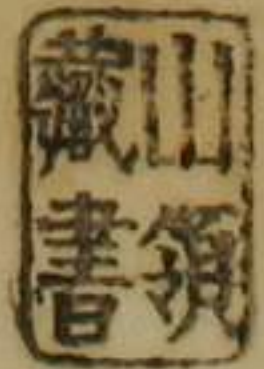 山領
藏書